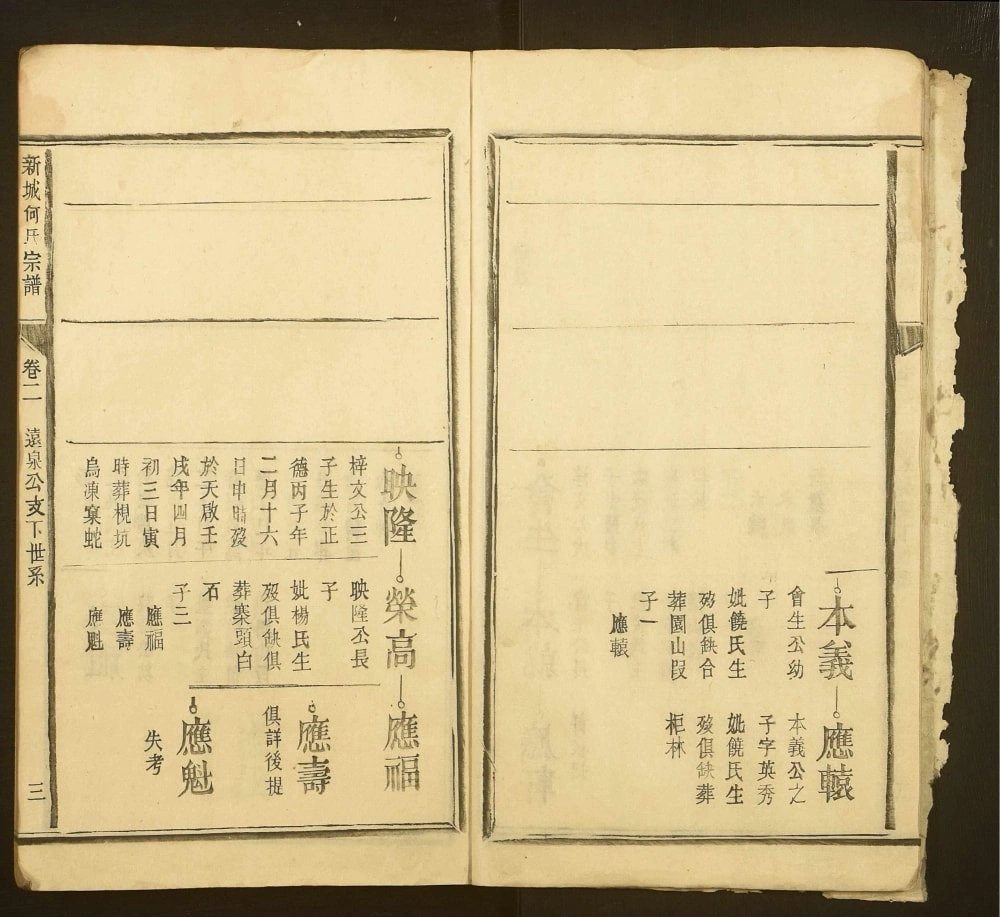 本義
會生公幼
子
妣饒氏生
歿俱缺合
葬園山叚
子一
應轅
應轅
本義公之
子字英秀
妣饒氏生
歿俱缺葬
柜林
映隆
梓文公三
子生於正
德丙子年
二月十六
日申時歿
於天啟壬
戌年四月
初三日寅
時葬梘坑
烏凍窠蛇
榮高
映隆公長
子
妣楊氏生
歿俱缺俱
葬寨頭白
石
子二
應福
應壽
應魁
應福
應壽
俱詳後提
應魁
失考
新城何氏宗譜
卷二
遠泉公支下世系
三